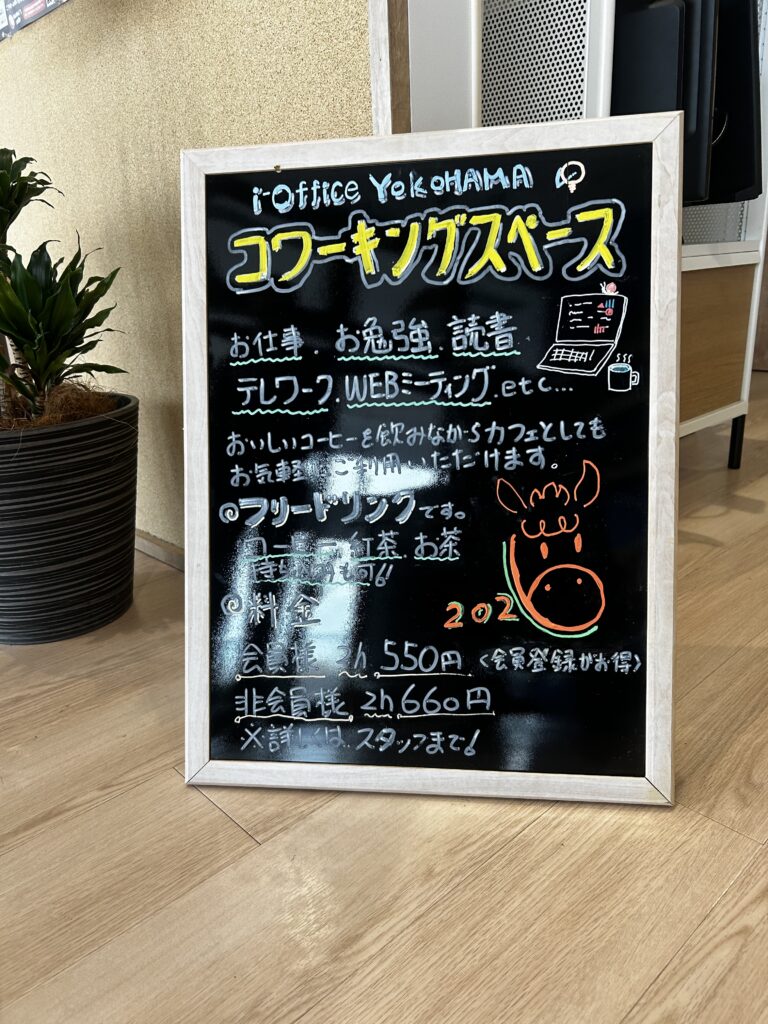 i-Office YOKOHAMA
コワーキングスペース
お仕事.お勉強.読書
テレワーク.WEBミーティング.etc...
おいしいコーヒーを飲みながらカフェとしても
お気軽にご利用いただけます。
フリードリンクです。
コーヒー 紅茶 お茶
持ち込みも可!
202
料金
会員様 2h 550円 〈会員登録がお得〉
非会員様 2h 660円
※詳しくは スタッフまで!